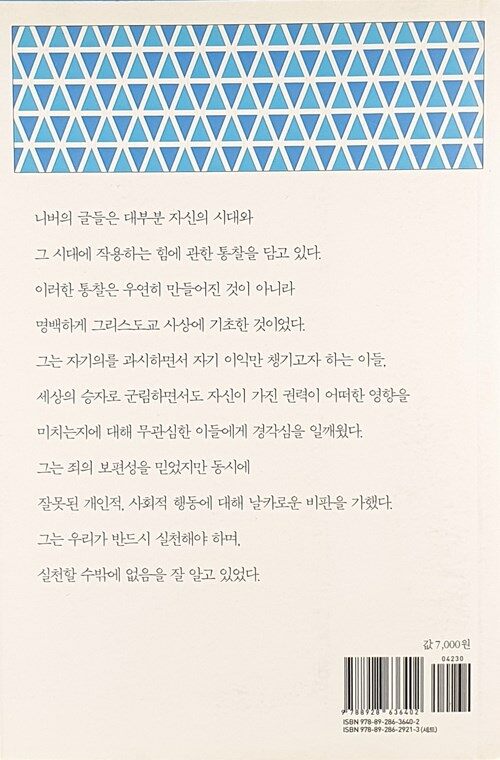 니버의 글들은 대부분 자신의 시대와
그 시대에 작용하는 힘에 관한 통찰을 담고 있다.
이러한 통찰은 우연히 만들어진 것이 아니라
명백하게 그리스도교 사상에 기초한 것이었다.
그는 자기의를 과시하면서 자기 이익만 챙기고자 하는 이들,
세상의 승자로 군림하면서도 자신이 가진 권력이 어떠한 영향을
미치는지에 대해 무관심한 이들에게 경각심을 일깨웠다.
그는 죄의 보편성을 믿었지만 동시에
잘못된 개인적, 사회적 행동에 대해 날카로운 비판을 가했다.
그는 우리가 반드시 실천해야 하며,
실천할 수밖에 없음을 잘 알고 있었다.
값 7,000원
04230
9 788928 636402
ISBN 978-89-286-3640-2
ISBN 978-89-286-2921-3 (세트)